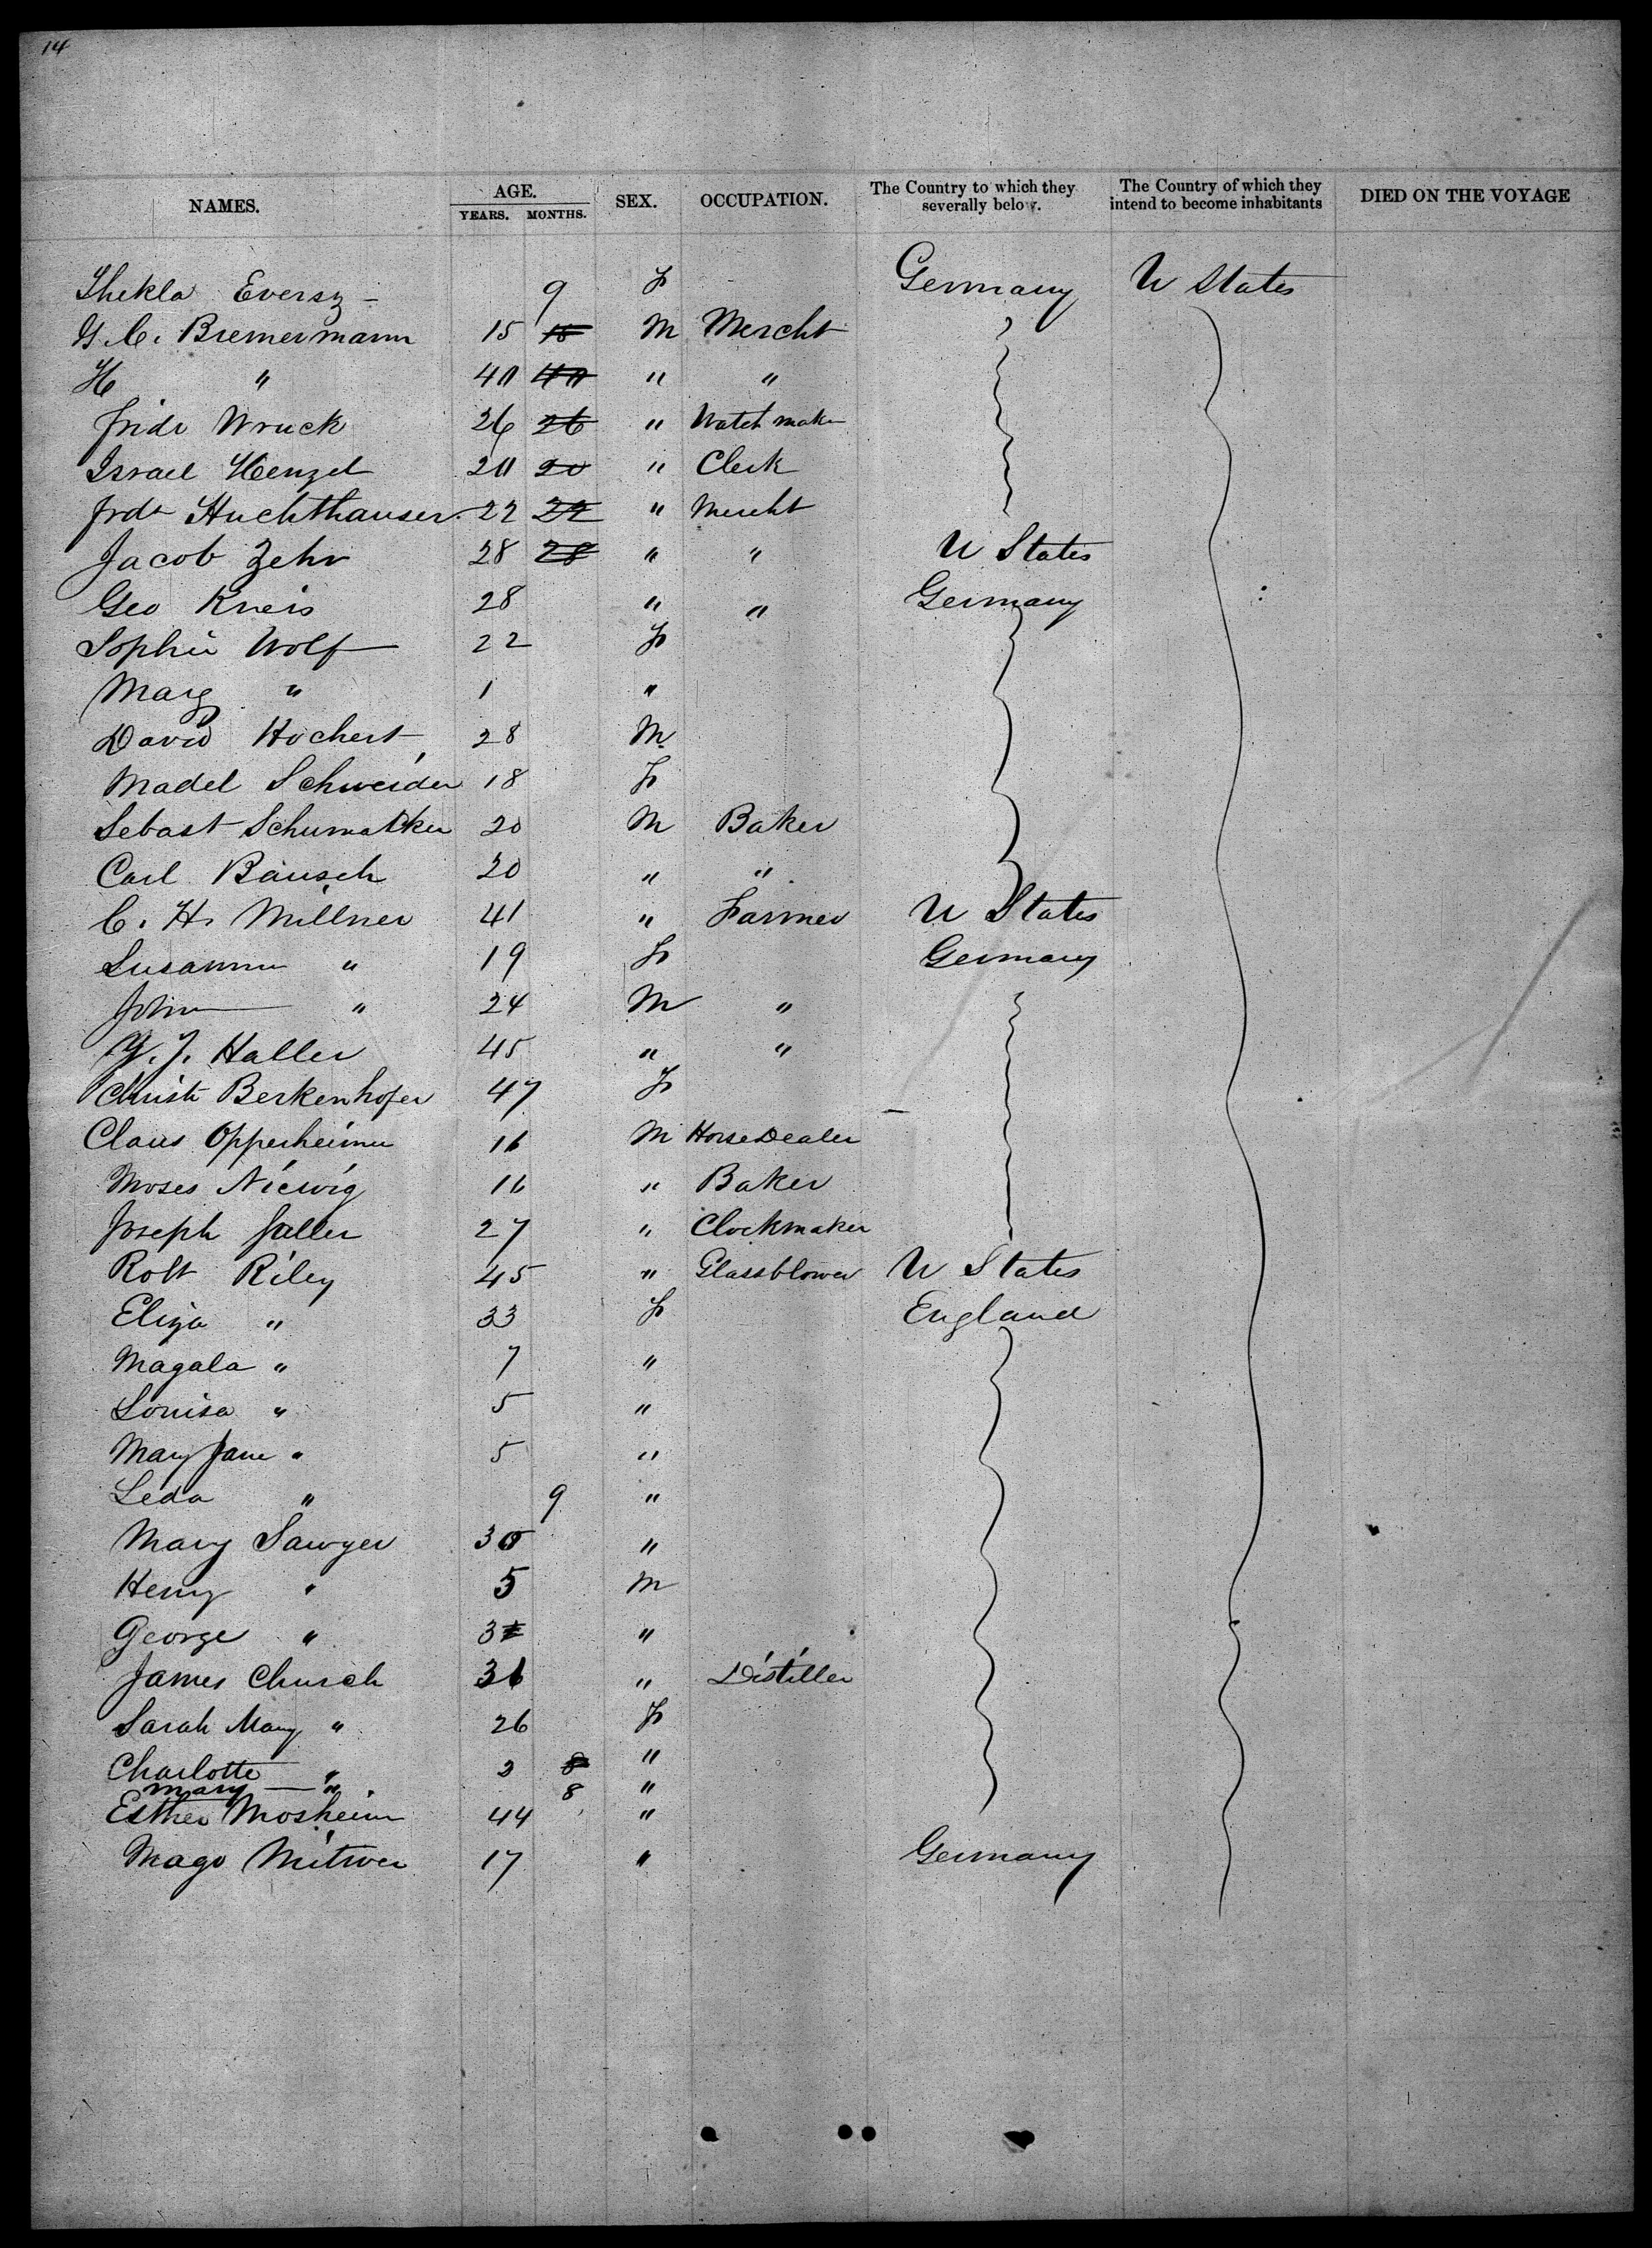 14
NAMES. AGE. SEX. OCCUPATION. The Country to which they severally below. The Country of which they intend to become inhabitants DIED ON THE VOYAGE
YEARS. MONTHS.
Thekla Eversz - 9 F Germany U States
G. C. Bremermann 15 15 M Mercht
H " 40 40 " "
Fridr Wruck 26 26 " Watch maker
Israel Henzel 20 20 " Clerk
Frdr Huchthauser 22 22 " Mercht
Jacob Zehr 28 28 " " U States
Geo Kneis 28 " " Germany
Sophie Wolf 22 F
Marg " 1 "
David Hochert 28 M
Madel Schneider 18 F
Sebast Schumacker 20 M Baker
Carl Bausch 20 " "
C. H. Millner 41 " Farmer U States
Susanna " 19 F Germany
John " 24 M "
G. J. Haller 45 " "
Christe Berkenhofer 47 F
Claus Oppenheimer 16 M Horse Dealer
Moses Niewig 16 " Baker
Joseph Faller 27 " Clockmaker
Robt Riley 45 " Glassblower U States
Eliza " 33 F England
Magala " 7 "
Louisa " 5 "
Mary Jane " 5 "
Leda " 9 "
Mary Sawyer 30 "
Henry " 5 M
George " 3 "
James Church 36 " Distiller
Sarah Mary " 26 F
Charlotte " 2 8 "
Mary — " 8 "
Esther Mosheim 44 "
Mago Mitwer 17 " Germany